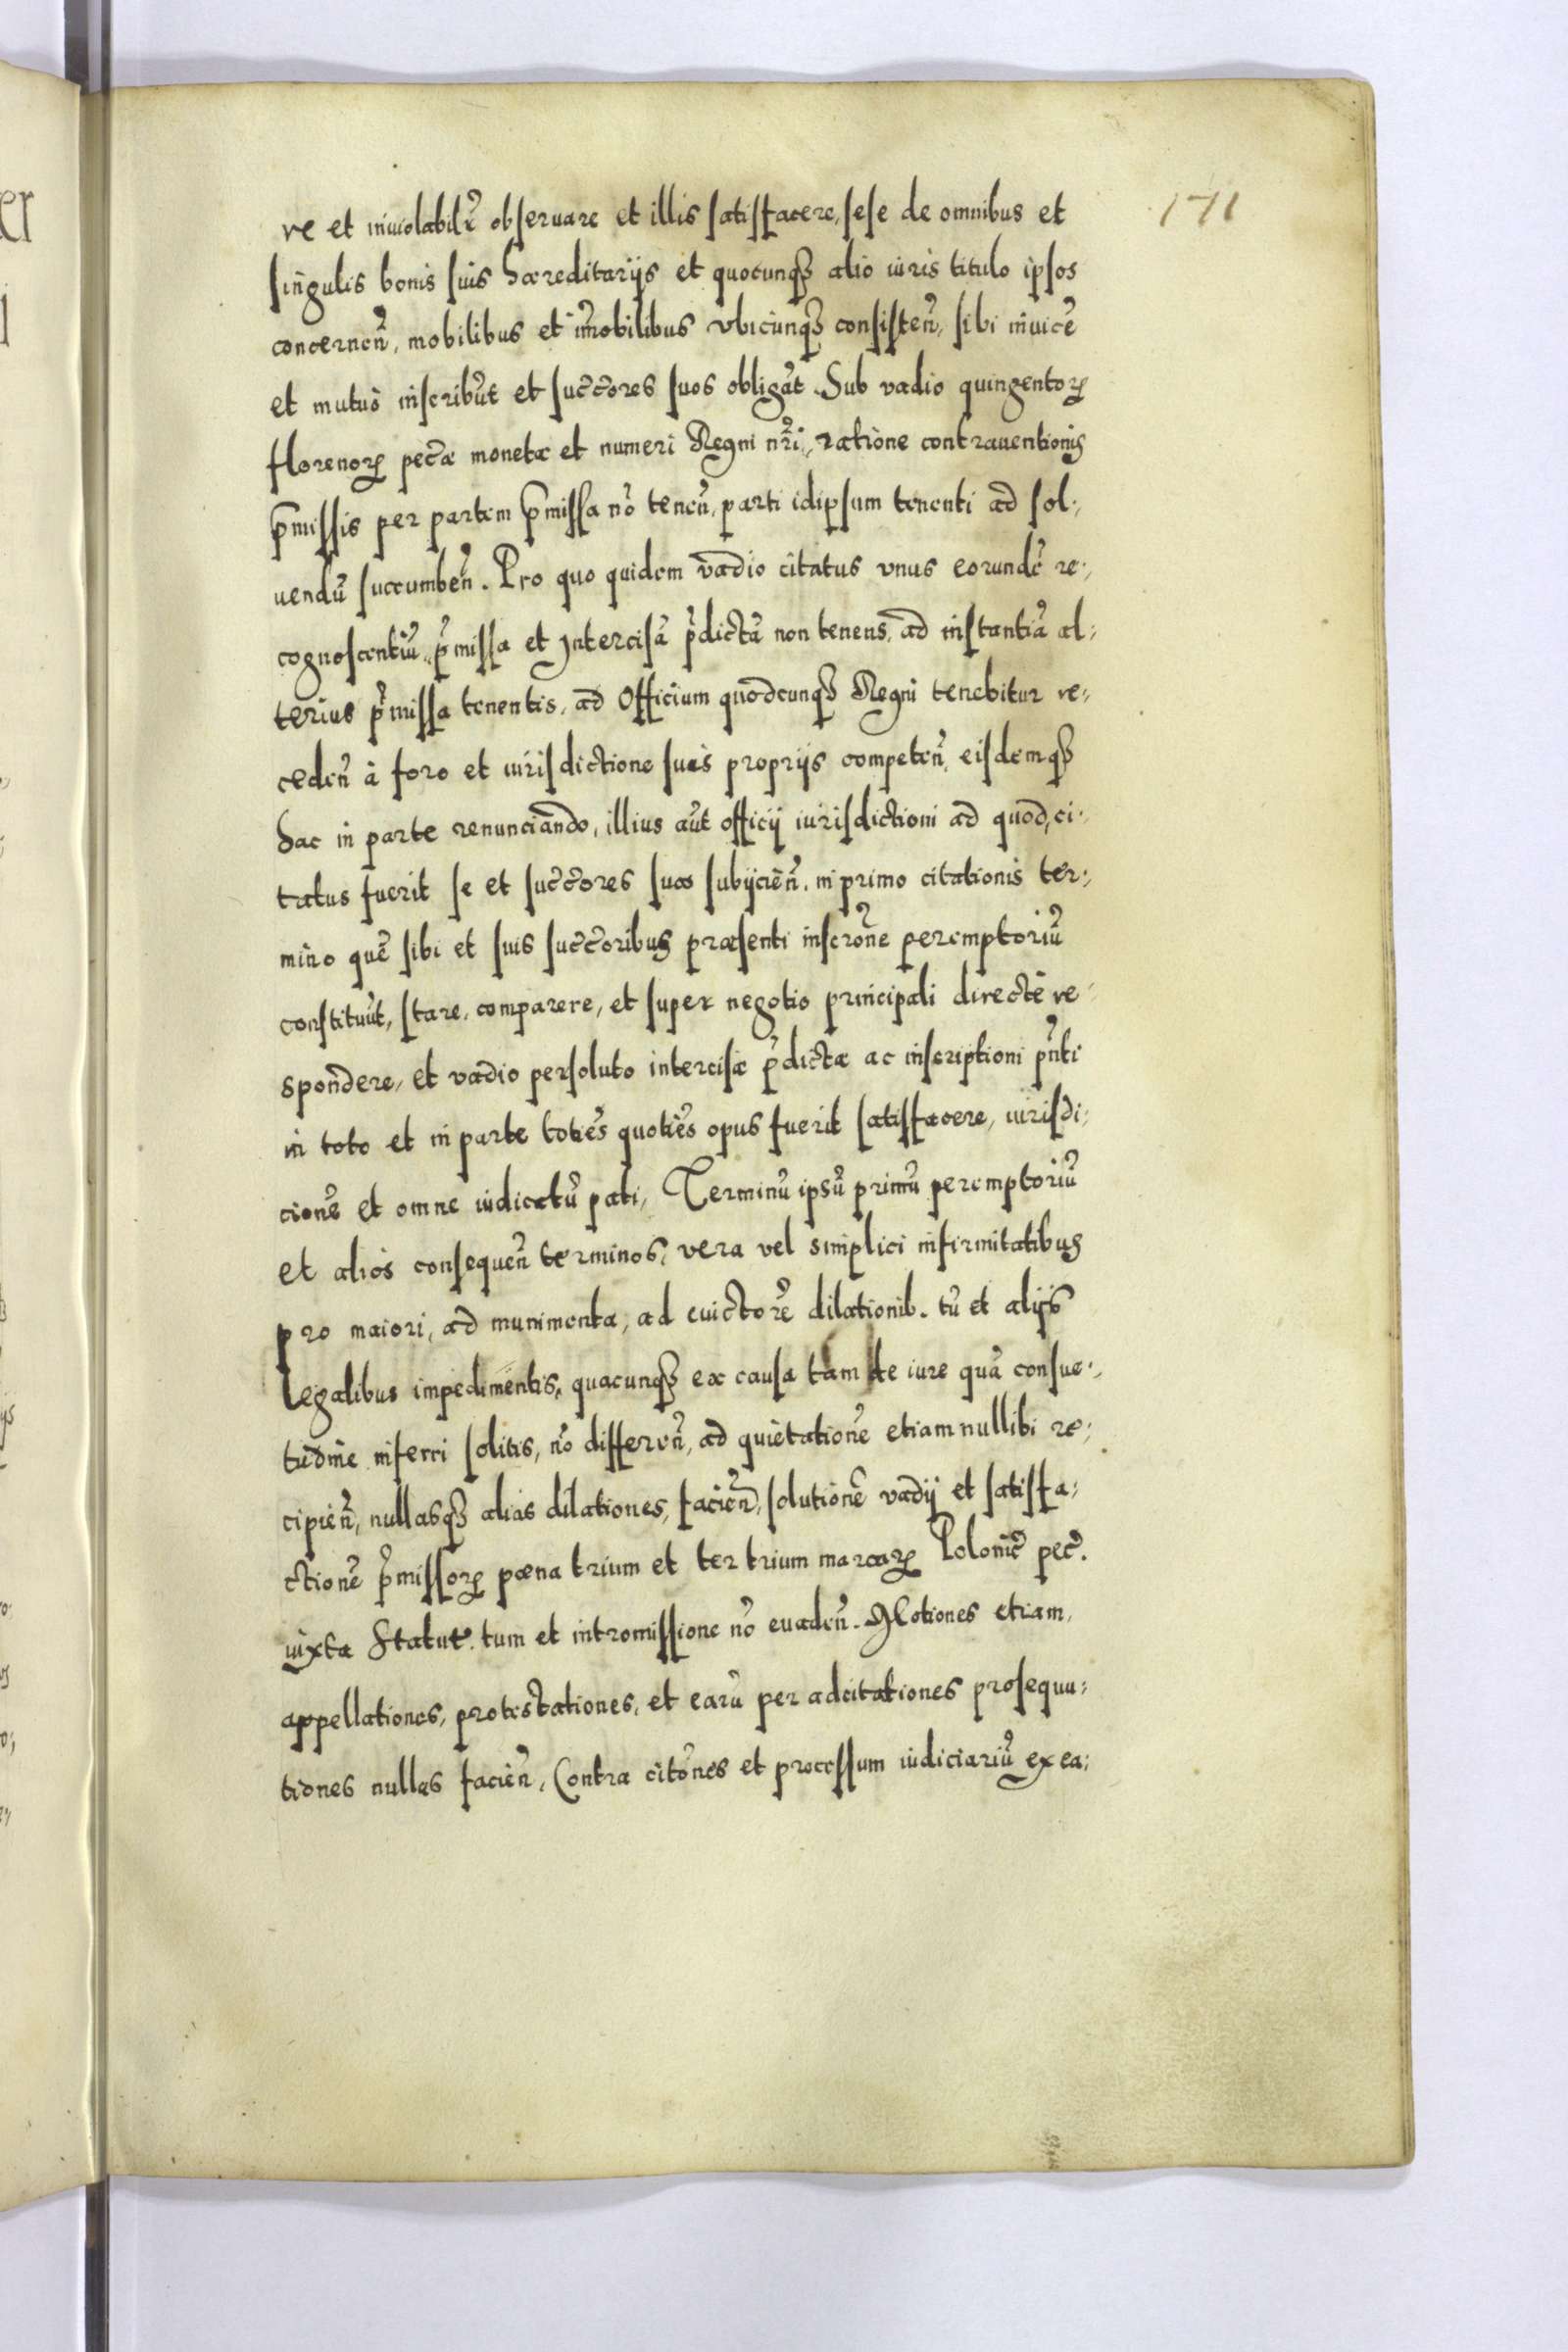 171
re et inuiolabilr̃ obseruare et illis satisfacere, sese de omnibus et
singulis bonis suis hæreditarijs et quocunqȝ alio iuris titulo ipsos
concernen̄, mobilibus et im̄obilibus vbicunqȝ consisten̄, sibi inuicē
et mutuò inscribūt et succ̄ores suos obligāt. Sub vadio quingentorꝝ
florenorꝝ pec̄æ monetæ et numeri Regni nr̄i, ratione contrauentionis
p̄missis per partem p̄missa nō tenen̄, parti idipsum tenenti ad sol⸗
uendū succumben̄. Pro quo quidem vadio citatus vnus eorundē re⸗
cognoscentiū, p̄missa et Intercisā p̄dictā non tenens, ad instantiā al⸗
terius p̄missa tenentis, ad Officium quodcunqȝ Regni tenebitur re⸗
ceden̄ à foro et iurisdictione suis proprijs competen̄, eisdemqȝ
hac in parte renunciando, illius aūt officij iurisdictioni ad quod, ci⸗
tatus fuerit se et succ̄ores suos subijcien̄. in primo citationis ter⸗
mino quē sibi et suis succ̄oribus præsenti inscrōne peremptoriū
constituūt, stare, comparere, et super negotio principali directè re⸗
spondere, et vadio persoluto intercisæ p̄dictæ ac inscriptioni pn̄ti
in toto et in parte totiēs quotiēs opus fuerit satisfacere, iurisdi⸗
cionē et omne iudicatū pati, Terminū ipsū primū peremptoriū
et alios consequen̄ terminos, vera vel simplici infirmitatibus
pro maiori, ad munimenta, ad euictorē dilationib. tū et alijs
legalibus impedimentis, quacunqȝ ex causa tam de iure quā consue⸗
tudine inferri solitis, nō differen̄, ad quietationē etiam nullibi re⸗
cipien̄, nullasqȝ alias dilationes, facien̄, solutionē vadij et satisfa⸗
ctionē p̄missorꝝ pœna trium et ter trium marcarꝝ Polonic̄ pec̄.
iuxta Statut. tum et intromissione nō euaden̄. Motiones etiam,
appellationes, protestationes, et earū per adcitationes prosequu⸗
tiones nullas facien̄, Contra citōnes et processum iudiciariū ex ea⸗